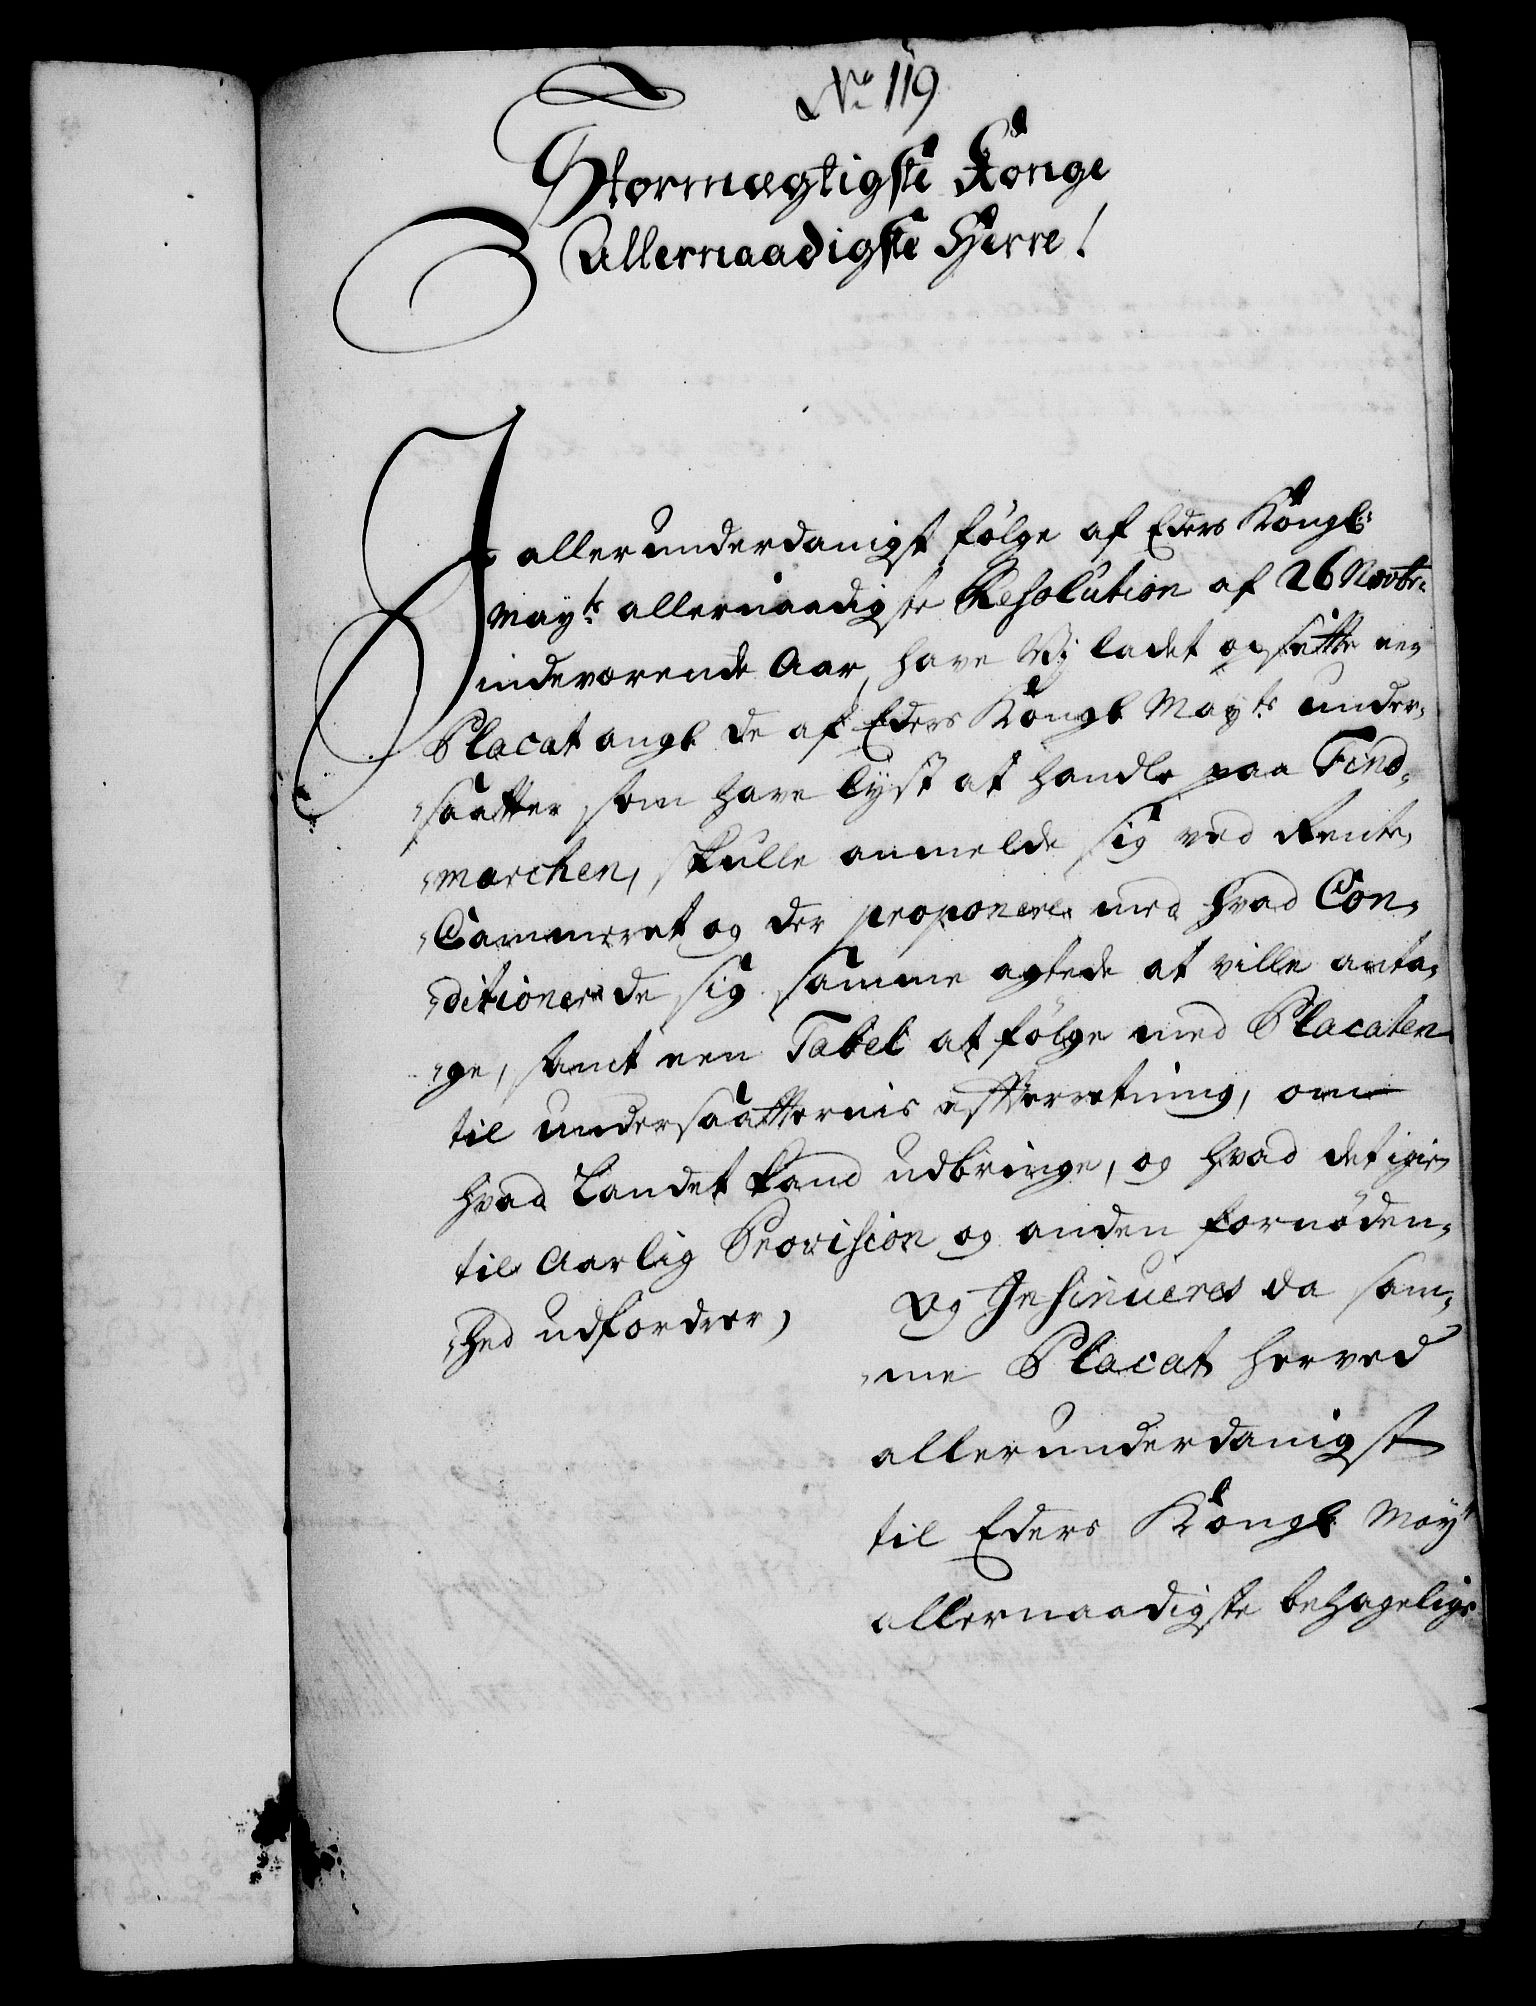 No 119
Stormægtigste Konge
Allernaadigste Herre!
I allerunderdanigst følge af Eders Kongl:
Mayts allernaadigste Resolution af 26 Novbr:
indeværende Aar, have Vij ladet opsætte een
Placat angl de af Eders Kongl Mayts under-
saatter som have lyst at handle paa Find-
marchen, skulle anmelde sig ved Rente-
Cammeret og der proponere med hvad Con-
ditioner de sig samme agtede at ville anta-
ge, samt een Tabel at følge med Placaten
til undersaatternis efterretning, om
hvad Landet kand udbringe, og hvad det igien
til Aarlig Provision og anden fornøden-
hed udfordrer,
Og Insinueres da sam-
me Placat herved
allerunderdanigst
til Eders Kongl Mayts
allernaadigste behagelige